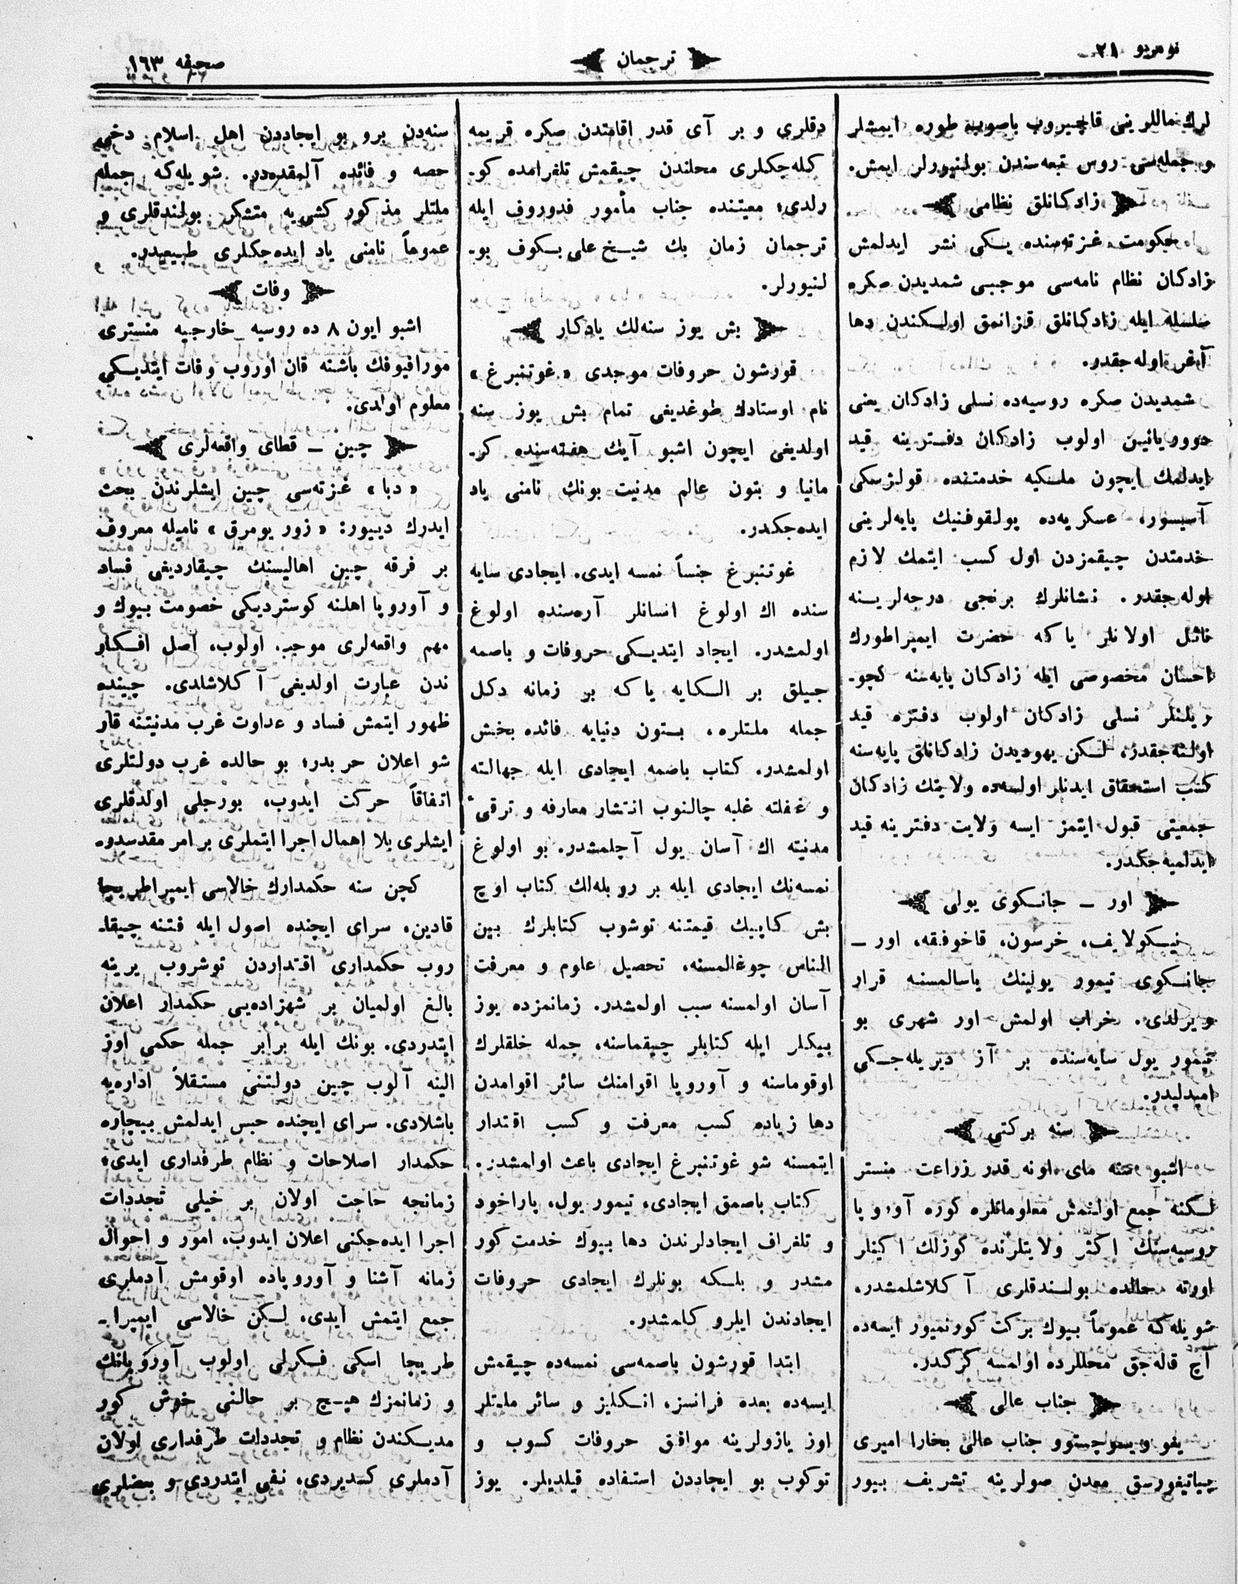 نومرو ٢١
ترجمان
صحيفه ١٦٣
لرك ماللرينى قاچيروب ياصوب طوره ايمشلر
و جمله‌سى روس تبعه‌سندن بولنيورلر ايمش.
زادكانلق نظامى
حكومت غزته‌سنده يكى نشر ايدلمش
زادكان نظام نامه‌سى موجبى شمديدن صكره
سلسله ايله زادكانلق قزانمق اولكندن دها
آغر اوله‌جقدر.
شمديدن صكره روسيه‌ده نسلى زادكان يعنى
دووريانين اولوب زادكان دفترينه قيد
ايدلمك ايچون ملكيه خدمتنده قولژسكى
آسيسور، عسكريه‌ده پولقوفنيك پايه‌لرينى
خدمتدن چيقمزدن اول كسب ايتمك لازم
اوله‌جقدر. نشانلرك برنجى درجه‌لرينه
نائل اولانلر ياكه حضرت ايمپراطورك
احسان مخصوصى ايله زادكان پايه‌سنه كچو-
ريلنلر نسلى زادكان اولوب دفتره قيد
اولنه‌جقدر، لكن يهوديدن زادكانلق پايه‌سنه
كسب استحقاق ايدنلر اولسه‌ده ولايتك زادكان
جمعيتى قبول ايتمز ايسه ولايت دفترينه قيد
ايدلميه‌جكدر.
اور ـ جانكوى يولى
نيكولايف، خرسون، قاخوفقه، اور ـ
جانكوى تيمور يولينك ياسالمسنه قرار
ويرلدى. خراب اولمش اور شهرى بو
تيمور يول سايه‌سنده بر آز ديريله‌جكى
اميدليدر.
سنه بركتى
اشبو سنه ماى اونه قدر زراعت منستر
لكنه جمع اولنمش معلوماتلره كوره آوروپا
روسيه‌سنك اكثر ولايتلرنده كوزلك اكينلر
اورته حالده بولندقلرى آكلاشلمشدر،
شويله‌كه عموماً بيوك بركت كورنميور ايسه‌ده
آچ قاله‌جق محللرده اولمسه كركدر.
جناب عالى
يغو ويسوچستوو جناب عالى بخارا اميرى
پياتيغورسق معدن صولرينه تشريف بيور
دقلرى و بر آى قدر اقامتدن صكره قريمه
كله‌جكلرى محلندن چيقمش تلغرامده كو-
رلدى؛ معيتنده جناب مأمور فدوروف ايله
ترجمان زمان بك شيخ على بكوف بو-
لنيورلر.
بش يوز سنه‌لك يادكار
قورشون حروفات موجدى «غوتنبرغ»
نام اوستادك طوغديغى تمام بش يوز سنه
اولديغى ايچون اشبو آيك هفته‌سنده كر-
مانيا و بتون عالم مدنيت بونك نامنى ياد
ايده‌جكدر.
غوتنبرغ جنساً نمسه ايدى. ايجادى سايه
سنده اك اولوغ انسانلر آره‌سنده اولوغ
اولمشدر. ايجاد ايتديكى حروفات و باصمه
جيلق بر الكايه ياكه بر زمانه دكل
جمله ملتلره، بتون دنيايه فائده بخش
اولمشدر. كتاب باصمه ايجادى ايله جهالته
و غفلته غلبه چالنوب انتشار معارفه و ترقىٔ
مدنيته اك آسان يول آچلمشدر. بو اولوغ
نمسه‌نك ايجادى ايله بر روبله‌لك كتاب اوچ
بش كاپيك قيمتنه توشوب كتابلرك بين
الناس چوغالمسنه، تحصيل علوم و معرفت
آسان اولمسنه سبب اولمشدر. زمانمزده يوز
بيكلر ايله كتابلر چيقماسنه، جمله خلقلرك
اوقوماسنه و آوروپا اقوامنك سائر اقوامدن
دها زياده كسب معرفت و كسب اقتدار
ايتمسنه شو غوتنبرغ ايجادى باعث اولمشدر.
كتاب باصمق ايجادى، تيمور يول، پاراخود
و تلغراف ايجادلرندن دها بيوك خدمت كور
مشدر و بلكه بونلرك ايجادى حروفات
ايجادندن ايلرو كلمشدر.
ابتدا قورشون باصمه‌سى نمسه‌ده چيقمش
ايسه‌ده بعده فرانسز، انكليز و سائر ملتلر
اوز يازولرينه موافق حروفات كسوب و
توكوب بو ايجاددن استفاده قيلديلر. يوز
سنه‌دن برو بو ايجاددن اهل اسلام دخى
حصه و فائده آلمقده‌در. شويله‌كه جمله
ملتلر مذكور كشى‌يه متشكر بولندقلرى و
عموماً نامنى ياد ايده‌جكلرى طبيعيدر.
وفات
اشبو ايون ٨ ده روسيه خارجيه منسترى
مورافيوفك باشنه قان اوروب وفات ايتديكى
معلوم اولدى.
چين ـ قطاى واقعه‌لرى
«دبا» غزته‌سى چين ايشلرندن بحث
ايدرك ديييور: «زور يومرق» ناميله معروف
بر فرقه چين اهاليسنك چيقارديغى فساد
و آوروپا اهلنه كوسترديكى خصومت بيوك و
مهم واقعه‌لرى موجب اولوب، اصل افكار
ندن عبارت اولديغى آكلاشلدى. چينده
ظهور ايتمش فساد و عداوت غرب مدنيتنه قار
شو اعلان حربدر؛ بو حالده غرب دولتلرى
اتفاقاً حركت ايدوب، بورجلى اولدقلرى
ايشلرى بلا اهمال اجرا ايتملرى بر امر مقدسدو-
كچن سنه حكمدارك خالاسى ايمپراطريچا
قادين، سراى ايچنده اصول ايله فتنه چيقا-
روب حكمدارى اقتداردن توشروب يرينه
بالغ اولميان بر شهزاده‌يى حكمدار اعلان
ايتدردى. بونك ايله برابر جمله حكمى اوز
الينه آلوب چين دولتنى مستقلاً اداره‌يه
باشلادى. سراى ايچنده حبس ايدلمش بيچاره
حكمدار اصلاحات و نظام طرفدارى ايدى؛
زمانجه حاجت اولان بر خيلى تجددات
اجرا ايده‌جكنى اعلان ايدوب، امور و احوال
زمانه آشنا و آوروپاده اوقومش آدملرى
جمع ايتمش ايدى، لكن خالاسى ايمپرا ـ
طريچا اسكى فكرلى اولوب آوروپانك
و زمانمزك هيچ بر حالنى خوش كور
مديكندن نظام و تجددات طرفدارى اولان
آدملرى كسديردى، نفى ايتدردى و بعضلرى